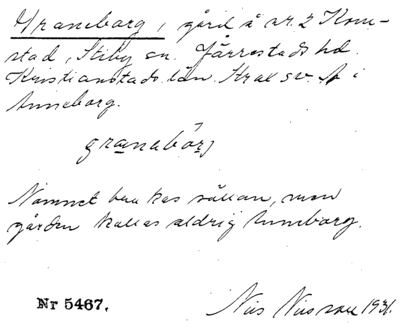 Graneborg, gård å nr. 2 Kom-
stad, Stiby sn. Järrestads hd.
Kristianstads län. Krae sv. A i
Anneborg.
granabórj
Namnet brukas sällan, men
gården kallas aldrig Anneborg.
Nr 5467.
Nils Nilsson 1931.